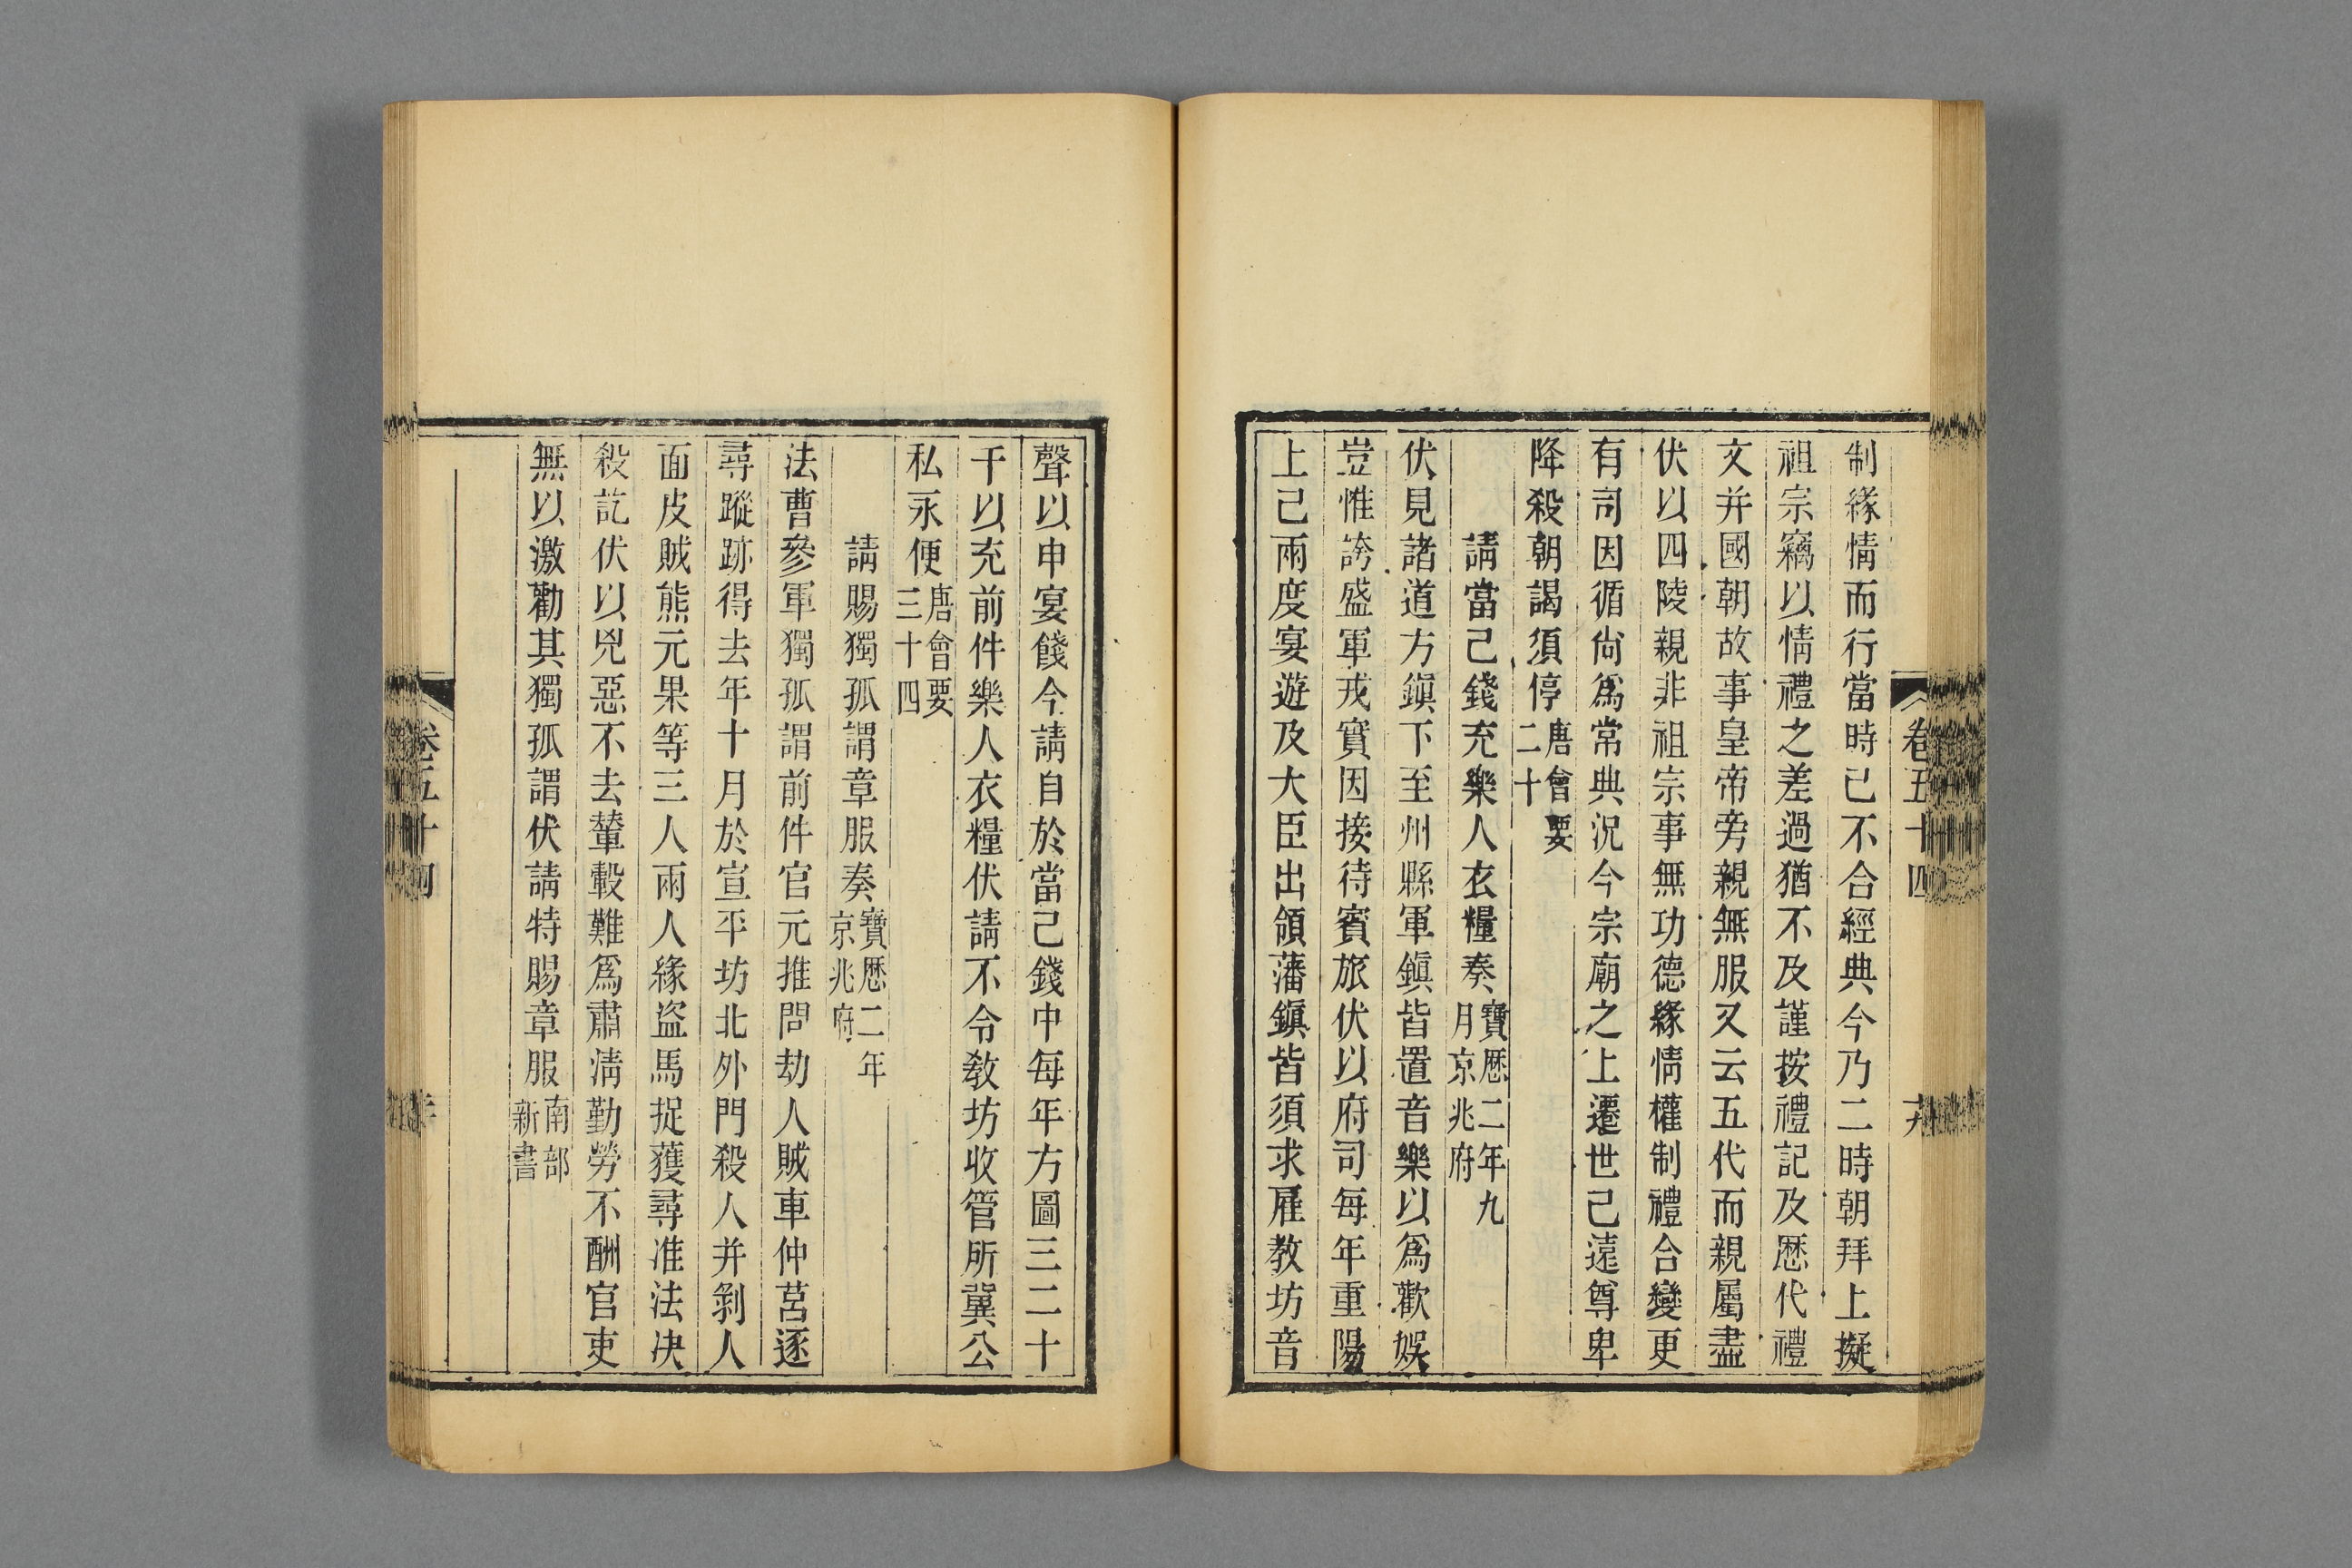 卷五十四
制緣情而行當時已不合經典今乃二時朝拜上擬
祖宗竊以情禮之差過猶不及謹按禮記及歷代禮
文并國朝故事皇帝旁親無服又云五代而親屬盡
伏以四陵親非祖宗事無功德緣情權制禮合變更
有司因循尙爲常典況今宗廟之上遷世已遠尊卑
降殺朝謁須停唐會要二十
請當己錢充樂人衣糧奏寶歷二年九月京兆府
伏見諸道方鎭下至州縣軍鎭皆置音樂以爲歡娛
豈惟誇盛軍戎實因接待賓旅伏以府司每年重陽
上已兩度宴遊及大臣出領藩鎭皆須求雇教坊音
聲以申宴餞今請自於當己錢中每年方圖三二十
千以充前件樂人衣糧伏請不令敎坊收管所冀公
私永便唐會要三十四
請賜獨孤謂章服奏寶歷二年京兆府
法曹參軍獨孤謂前件官元推問劫人賊車仲莒逐
尋蹤跡得去年十月於宣平坊北外門殺人并剝人
面皮賊熊元果等三人兩人緣盜馬捉獲尋准法决
殺訖伏以兇惡不去輦轂難爲肅淸勤勞不酬官吏
無以激勸其獨孤謂伏請特賜章服南部新書
卷五十四